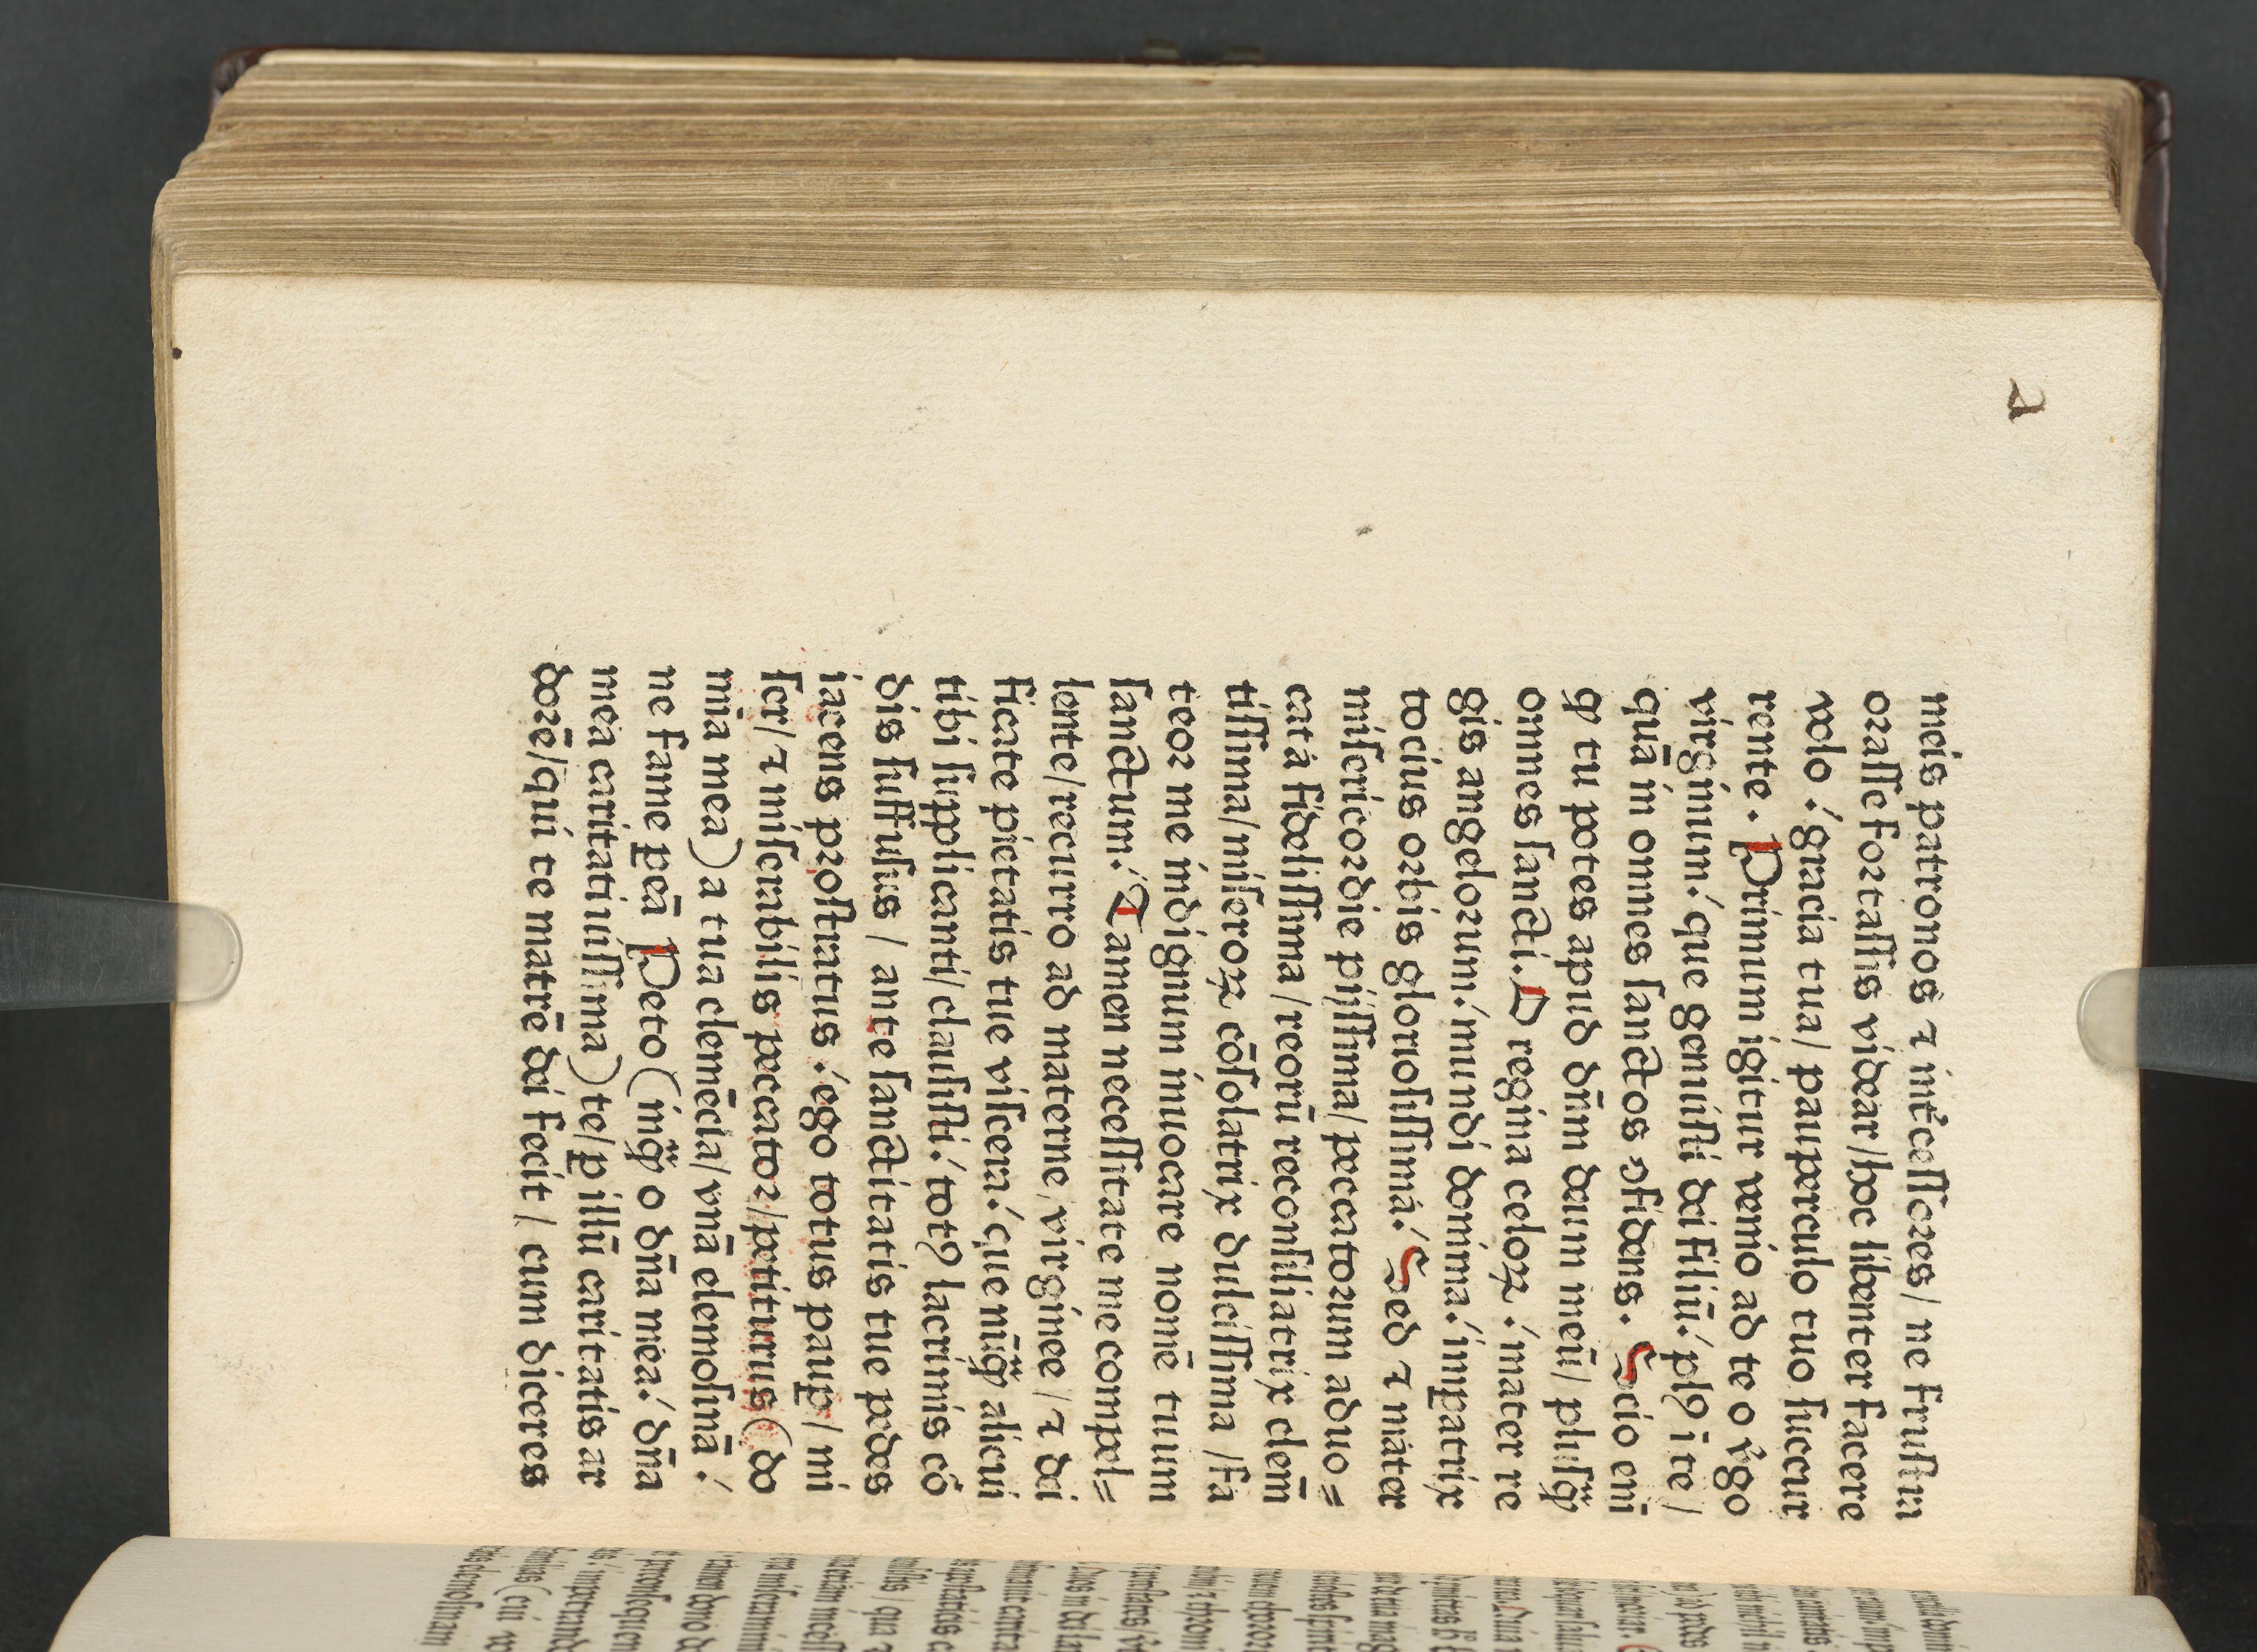 2
meis patronos ⁊ int̉cessores/ ne frustra
orasse fortassis videar/hoc libenter facere
volo :́ gracia tua/ pauperculo tuo succur
rente . Primum igitur venio ad te o v̉go
virginum:́ que genuisti dei filiū:́ plꝰ ī te /
quā in omnes sanctos ꝯfidens. Scio enī
ꝙ tu potes apud dūm deum meū/ plusꝙ̃
omnes sancti. O regina celoꝝ :́ mater re
gis angelorum:́ mundi domina:́ imperatrix
tocius orbis gloriosissima:́ Sed ⁊ mater
misericordie piissima/ peccatorum aduo=
cata fidelissima/ reorū reconsiliatrix clem̄
tissima/ miseroꝝ cōsolatrix dulcissima /fa
teor me indignum inuocare nomē tuum
sanctum:́ Tamen necessitate me compel=
lente/recurro ad materne virginee / ⁊ dei
ficate pietatis tue viscera:́ que nūꝙ̃ alicui
tibi supplicanti/ clausisti:́ totꝰ lacrimis cō
dis suffusus / ante sanctitatis tue pedes
iacens prostratus :́ ego totus paup̱/ mi
ser/ ⁊ miserabilis peccator/petiturus (do
mīa mea) a tua clemēcia/vnā elemosinā :́
ne fame peā Peto (inꝙ̃ o dn̄a mea:́ dn̄a
mea caritatiuissima) te/p̱ illū caritatis ar
dorē/qui te matrē dei fecit / cum diceres